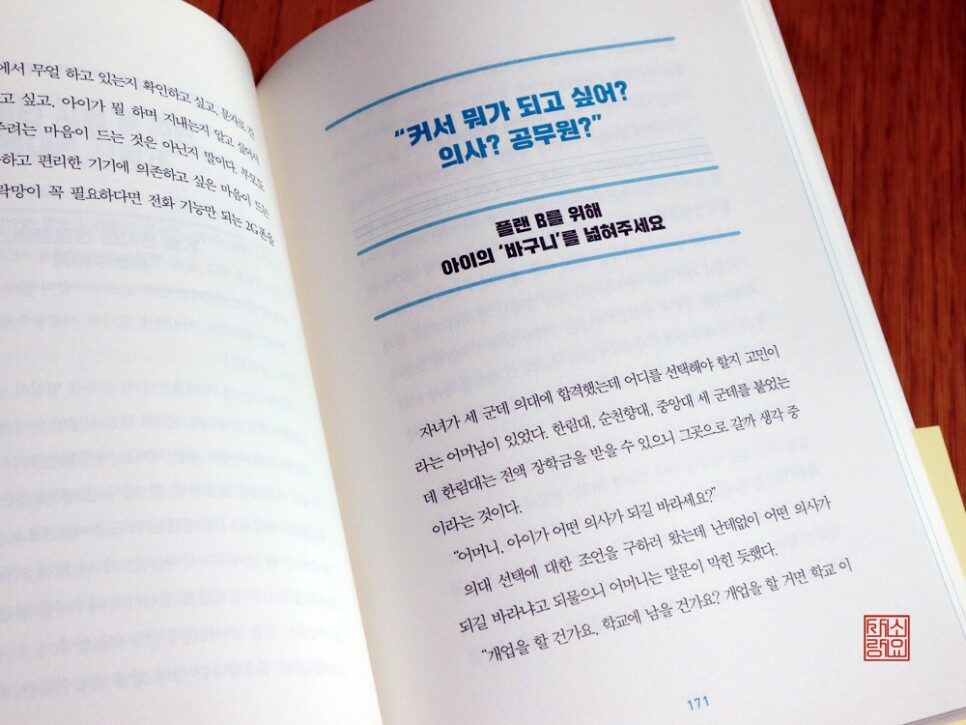 에서 무얼 하고 있는지 확인하고 싶고, 문자로
고 싶고, 아이가 뭘 하며 지내는지 알고 싶어서
쓰려는 마음이 드는 것은 아닌지 말이다. 부모도
하고 편리한 기기에 의존하고 싶은 마음이 드는
락망이 꼭 필요하다면 전화 기능만 되는 2G폰을
“커서 뭐가 되고 싶어?
의사? 공무원?”
플랜 B를 위해
아이의 ‘바구니’를 넓혀주세요
자녀가 세 군데 의대에 합격했는데 어디를 선택해야 할지 고민이
라는 어머님이 있었다. 한림대, 순천향대, 중앙대 세 군데를 붙었는
데 한림대는 전액 장학금을 받을 수 있으니 그곳으로 갈까 생각 중
이라는 것이다.
“어머니, 아이가 어떤 의사가 되길 바라세요?”
의대 선택에 대한 조언을 구하러 왔는데 난데없이 어떤 의사가
되길 바라냐고 되물으니 어머니는 말문이 막힌 듯했다.
“개업을 할 건가요, 학교에 남을 건가요? 개업을 할 거면 학교 이
171